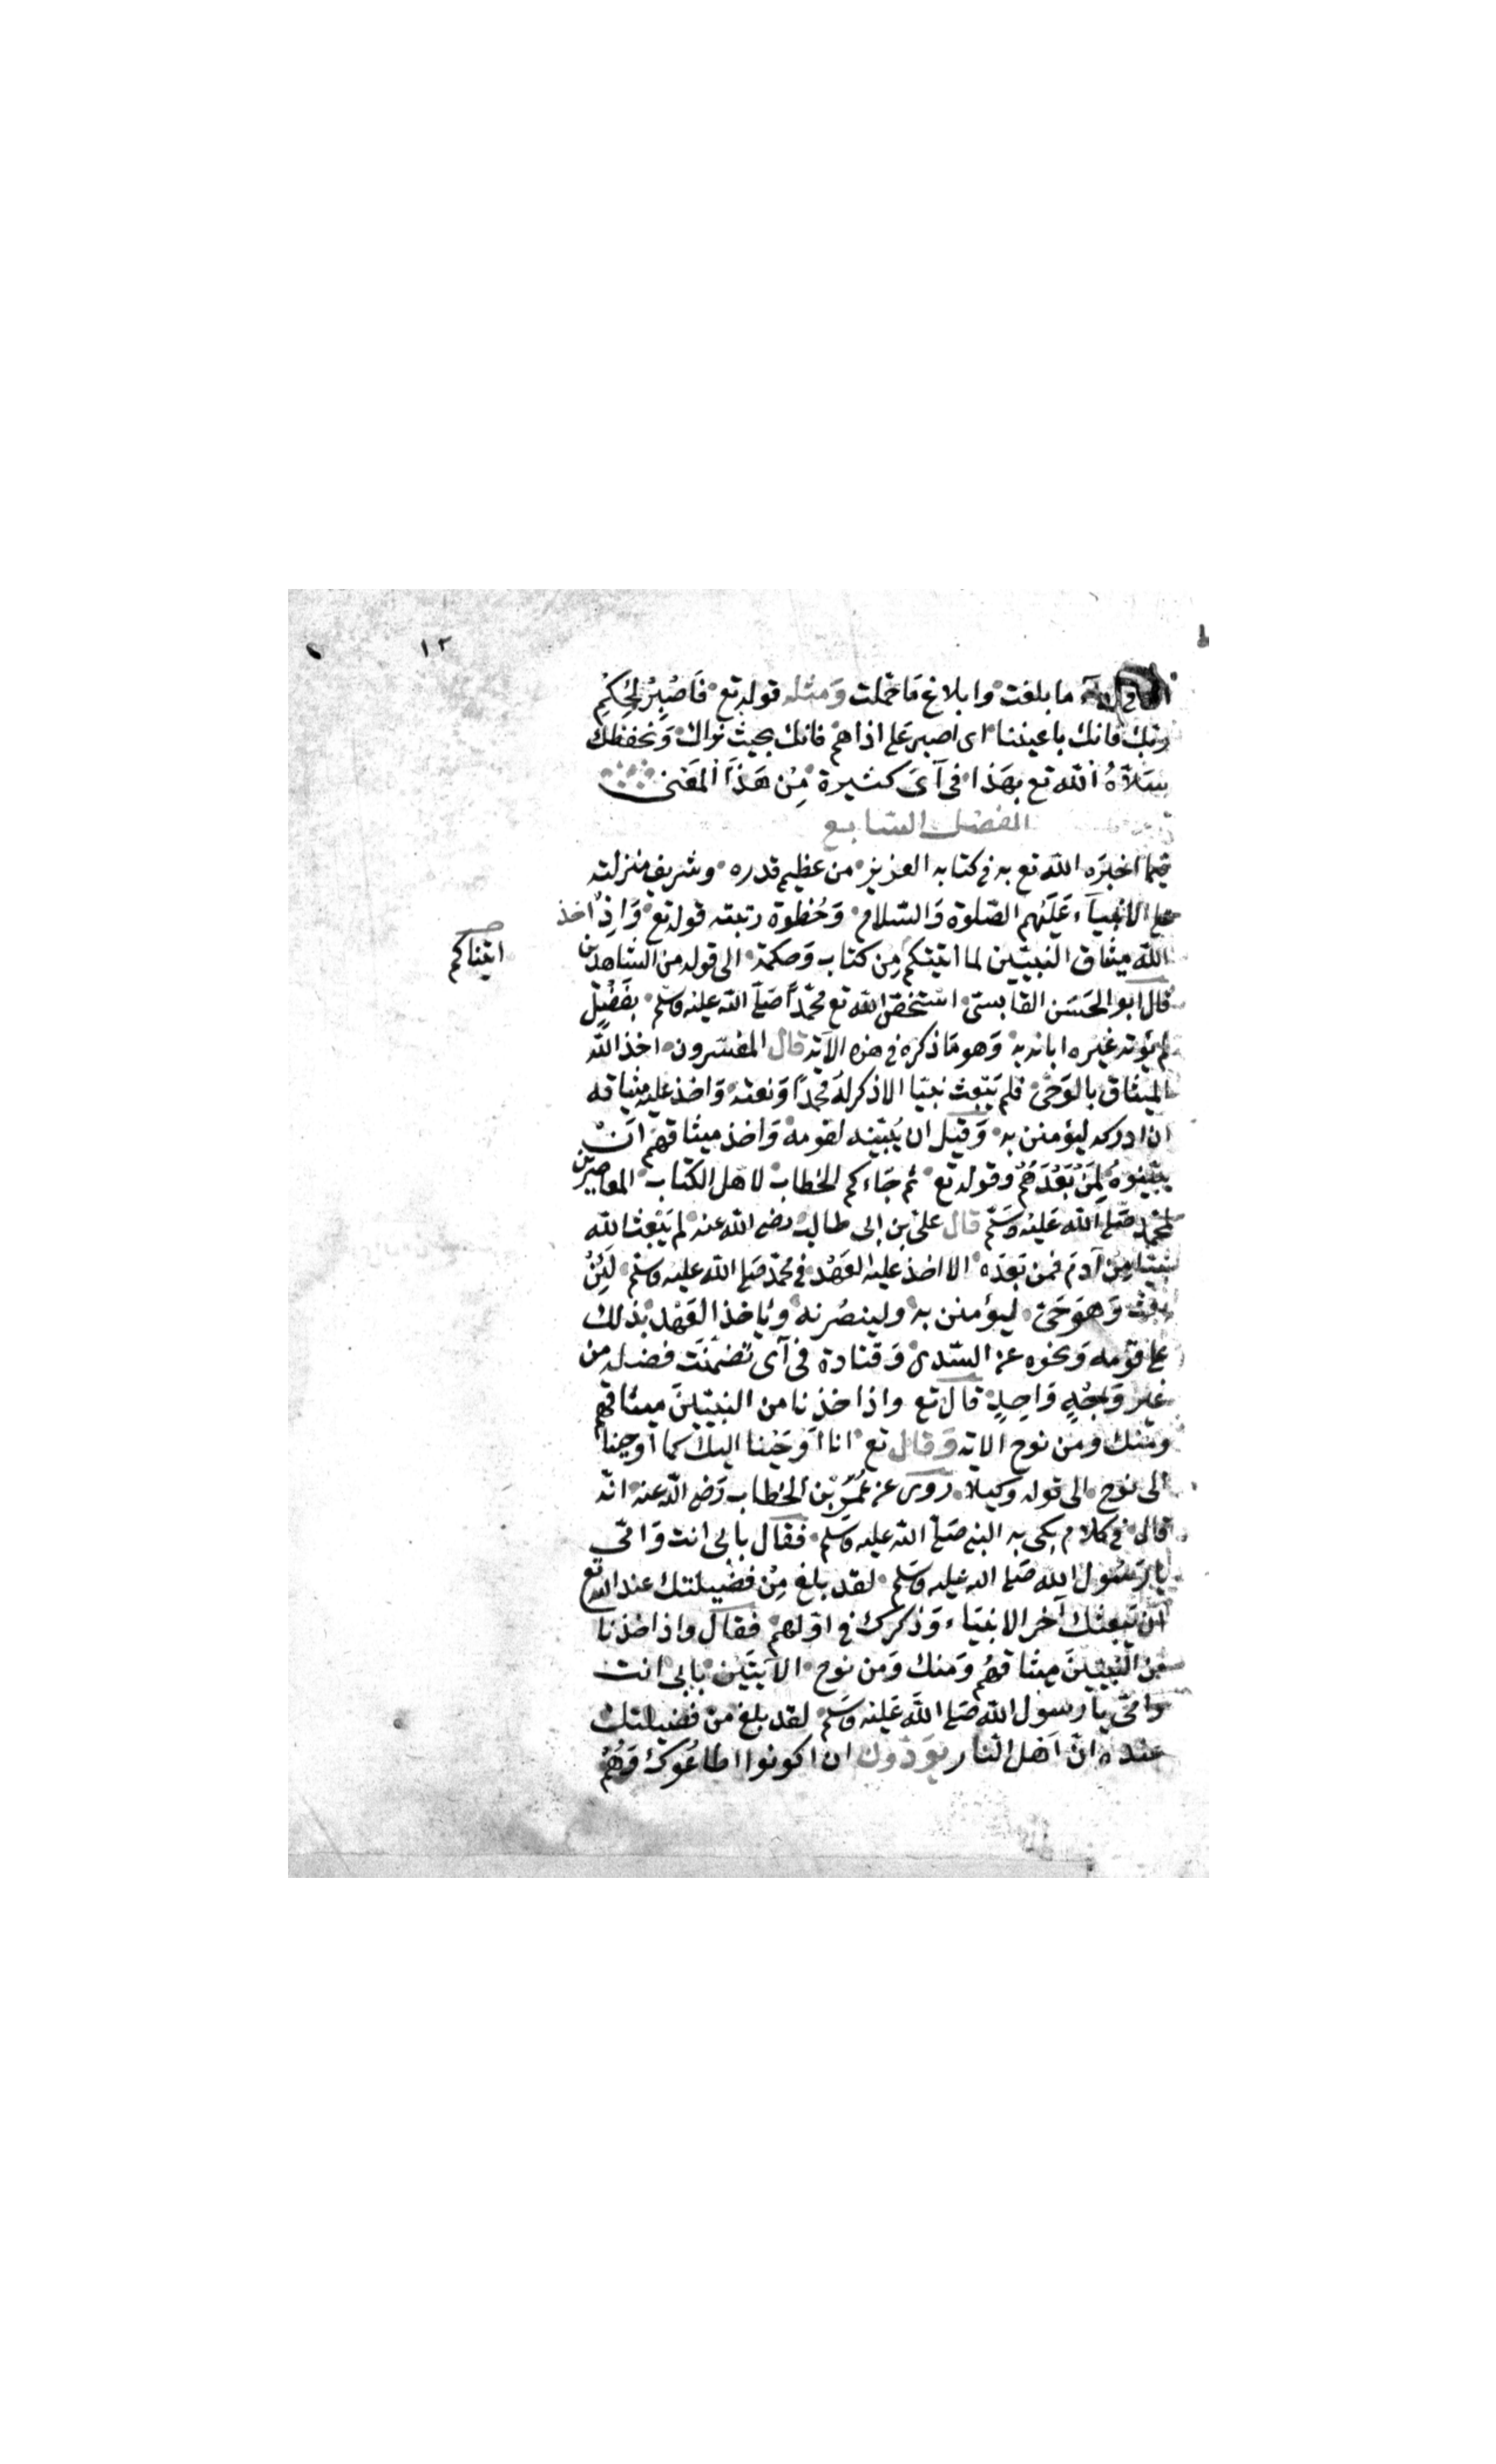 ١٢
ما بلغت وابلاغ ما حملت ومثله قوله تع فاصبر لحكم
ربك فانك باعيننا اى اصبر على اذاهم فانك بحيث نراك ونحفظك
سلاه الله تع بهذا فى آى كثيرة من هذا المعنى
الفصل السابع
فيما اخبره الله تع به فى كتابه العزيز من عظيم قدره وشريف منزلته
على الانبياء عليهم الصلوة والسلام وحظوة رتبته قوله تع واذ اخذ
الله ميثاق النبيين لما اتيتكم من كتاب وحكمة الى قوله من الشاهدين
اتيناكم
قال ابو الحسن القابسى استخص الله تع محمدا صلى الله عليه وسلم بفضل
لم يؤته غيره ابانه به وهو ما ذكره فى هذه الاية قال المفسرون اخذ الله
الميثاق بالوحى فلم يبعث نبيا الا ذكر له محمدا ونعته واخذ عليه ميثاقه
ان ادركه ليؤمنن به وقيل ان يبينه لقومه واخذ ميثاقهم ان
يبينوه لمن بعدهم وقوله تع ثم جاءكم الخطاب لاهل الكتاب المعاصرين
لمحمد صلى الله عليه وسلم قال على بن ابى طالب رضى الله عنه لم يبعث الله
نبيا من آدم فمن بعده الا اخذ عليه العهد فى محمد صلى الله عليه وسلم لئن
بعث وهو حى ليؤمنن به ولينصرنه وياخذ العهد بذلك
على قومه ونحوه عن السدى وقتادة فى آى تضمنت فضله من
غير وجه واحد قال تع واذ اخذنا من النبيين ميثاقهم
ومنك ومن نوح الاية وقال تع انا اوحينا اليك كما اوحينا
الى نوح الى قوله وكيلا روى عن عمر بن الخطاب رضى الله عنه انه
قال فى كلام بكى به النبى صلى الله عليه وسلم فقال بابى انت وامى
يا رسول الله صلى الله عليه وسلم لقد بلغ من فضيلتك عند الله تع
ان بعثك آخر الانبياء وذكرك فى اولهم فقال واذ اخذنا
من النبيين ميثاقهم ومنك ومن نوح الايتين بابى انت
وامى يا رسول الله صلى الله عليه وسلم لقد بلغ من فضيلتك
عنده ان اهل النار يودون ان اكونوا اطاعوك وهم